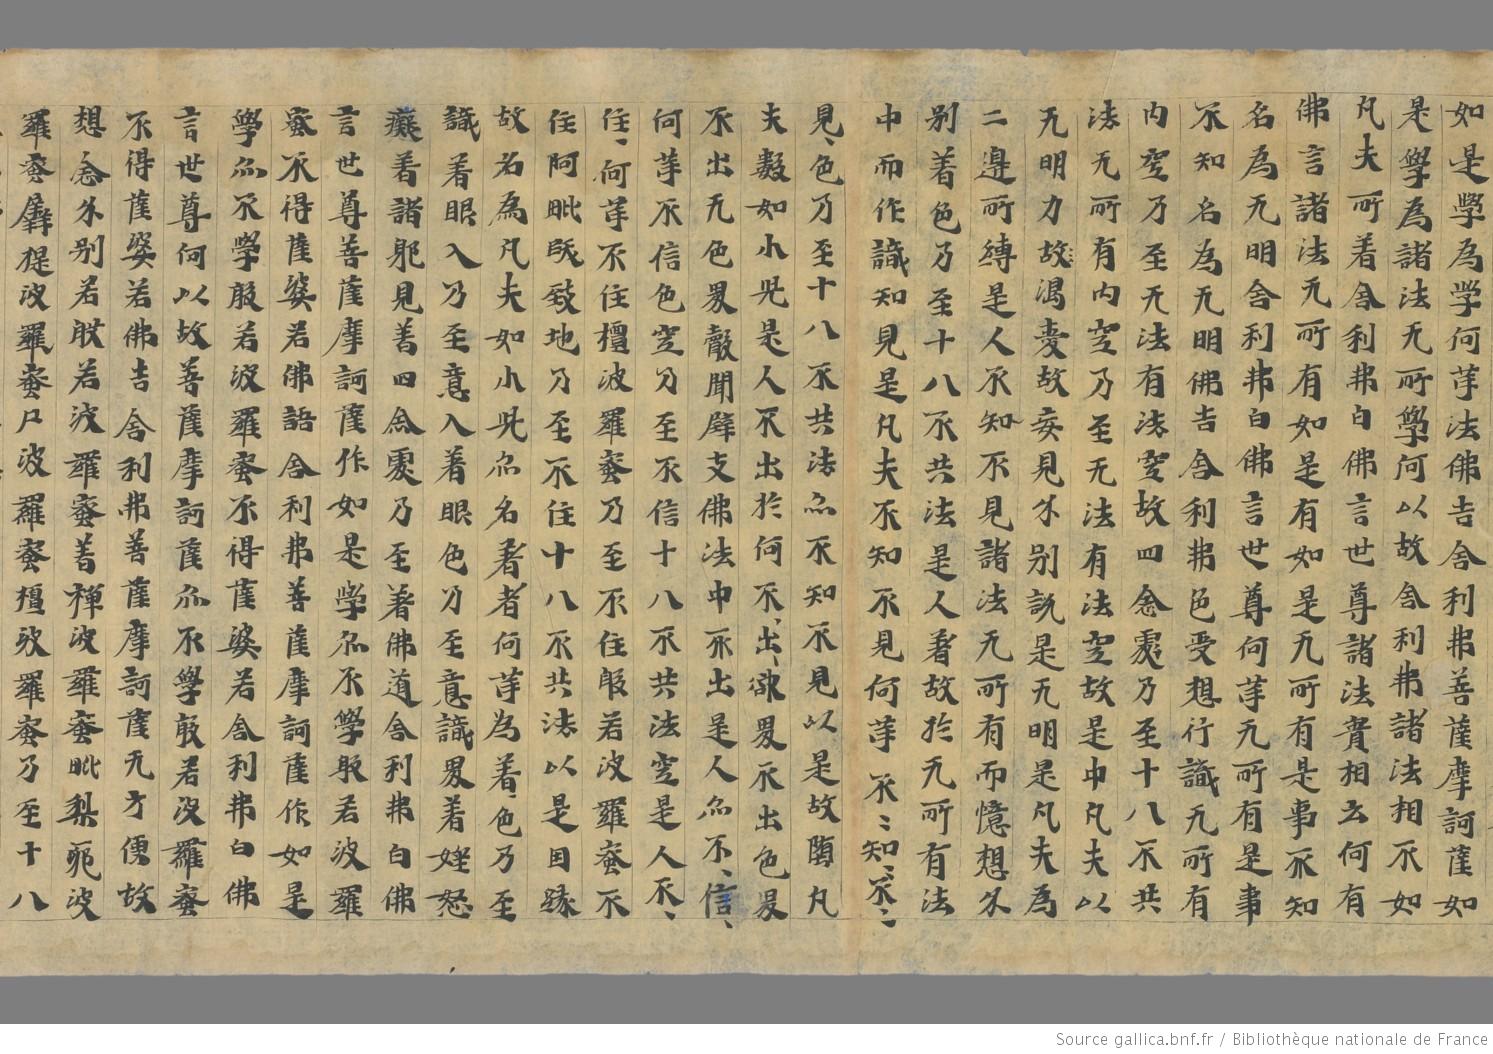 如是學為學何等法佛告舍利弗菩薩摩訶薩如
是學為諸法无所學何以故舍利弗諸法相不如
凡夫所著舍利弗白佛言世尊諸法實相云何有
佛言諸法无所有如是有如是无所有是事不知
名為无明舍利弗白佛言世尊何等无所有是事
不知名為无明佛告舍利弗色受想行識无所有
内空乃至无法有法空故四念處乃至十八不共
法无所有内空乃至无法有法空故是中凡夫以
无明力故渴愛故妄見分別說是无明是凡夫為
二邊所縛是人不知不見諸法无所有而憶想分
別著色乃至十八不共法是人著故於无所有法
中而作識知見是凡夫不知不見何等不〻知〻不〻
見〻色乃至十八不共法亦不知不見以是故墮凡
夫數如小兒是人不出於何不〻出〻欲界不出色界
不出无色界聲聞辟支佛法中不出是人亦不〻信〻
何等不信色空乃至不信十八不共法空是人不〻
住〻何等不住檀波羅蜜乃至不住般若波羅蜜不
住阿毗跋致地乃至不住十八不共法以是因緣
故名為凡夫如小兒亦名著者何等為著〻色乃至
識著眼入乃至意入著眼色乃至意識界著婬怒
癡著諸邪見著四念處乃至著佛道舍利弗白佛
言世尊菩薩摩訶薩作如是學亦不學般若波羅
蜜不得薩婆若佛語舍利弗菩薩摩訶薩作如是
學亦不學般若波羅蜜不得薩婆若舍利弗白佛
言世尊何以故菩薩摩訶薩亦不學般若波羅蜜
不得薩婆若佛告舍利弗菩薩摩訶薩无方便故
想念分別著般若波羅蜜著禪波羅蜜毗梨耶波
羅蜜羼提波羅蜜尸波羅蜜檀波羅蜜乃至十八
Source gallica.bnf.fr / Bibliothèque nationale de France